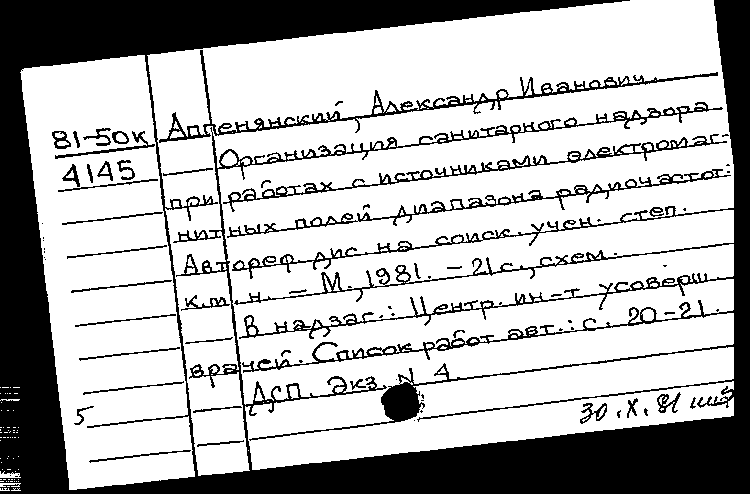 81-50к Аппенянский, Александр Иванович.
4145 Организация санитарного надзора
при работах с источниками электромаг-
нитных полей диапазона радиочастот:
Автореф. дис. на соиск. учен. степ.
к.м.н. – М., 1981. – 21 с., схем.
В надзаг.: Центр. ин-т усоверш.
врачей. Список работ авт.: с. 20-21.
ДСП. Экз. N 4
5
30.X.81